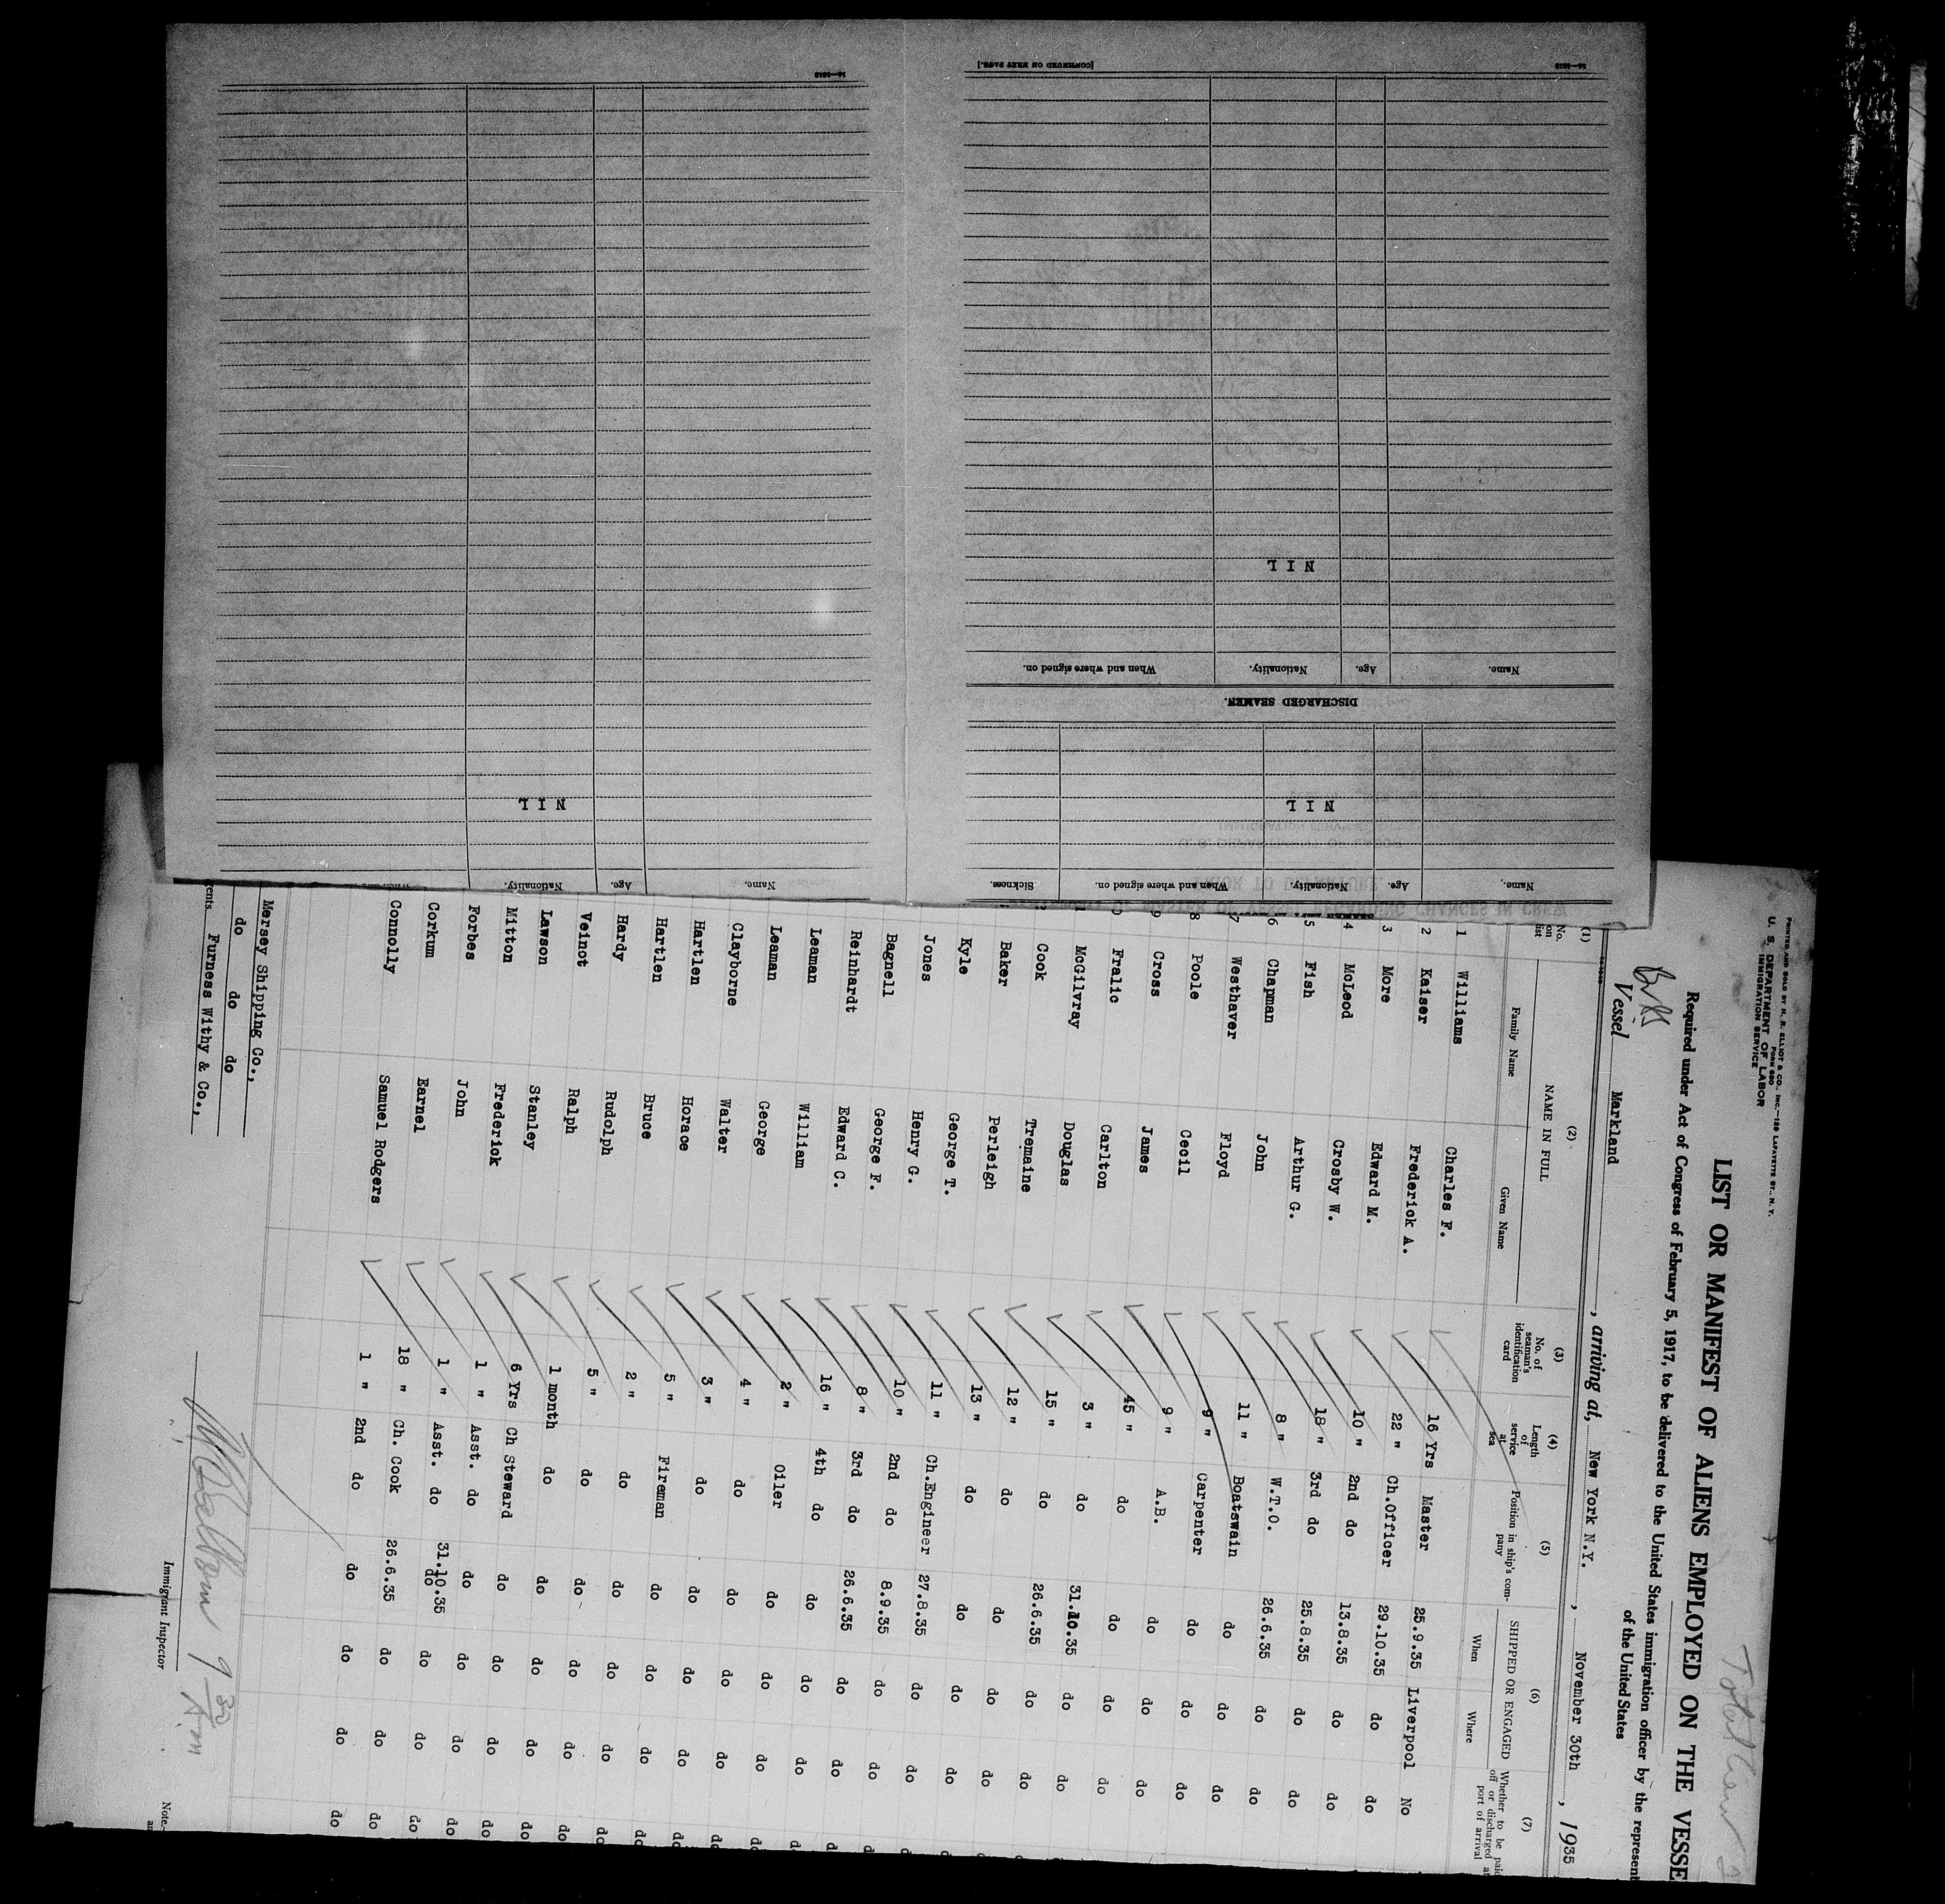 16—1818
NIL
Name. Age. Nationality.
Name. Age. Nationality. When and where signed on. Sickness.
NIL
DISCHARGED SEAMEN.
Name. Age. Nationality. When and where signed on.
NIL
16—1818 [CONTINUED ON NEXT PAGE.]
PRINTED AND SOLD BY H. R. ELLIOT & CO., INC.—129 LAFAYETTE ST., N. Y.
FORM 680
U. S. DEPARTMENT OF LABOR
IMMIGRATION SERVICE
LIST OR MANIFEST OF ALIENS EMPLOYED ON THE VESSE
Required under Act of Congress of February 5, 1917, to be delivered to the United States immigration officer by the represent
of the United States
Vessel Markland , arriving at, New York N.Y. , November 30th , 1935
(1) (2) (3) (4) (5) (6) (7)
No. on list NAME IN FULL No. of seaman's identification card Length of service at sea Position in ship's company SHIPPED OR ENGAGED Whether to be paid off or discharged at port of arrival
Family Name Given Name When Where
1 Williams Charles F. 16 Yrs Master 25.9.35 Liverpool No
2 Kaiser Frederick A. 22 " Ch.Officer 29.10.35 do do
3 More Edward M. 10 " 2nd do 13.8.35 do do
4 McLeod Crosby W. 18 " 3rd do 25.8.35 do do
5 Fish Arthur G. 8 " W.T.O. 26.6.35 do do
6 Chapman John 11 " Boatswain do do do
7 Westhaver Floyd 9 " Carpenter do do do
8 Poole Cecil 9 " A.B. do do do
9 Cross James 45 " do do do do
Fralic Carlton 3 " do 31.10.35 do do
McGilvray Douglas 15 " do 26.6.35 do do
Cook Tremaine 12 " do do do do
Baker Perleigh 13 " do do do do
Kyle George T. 11 " Ch.Engineer 27.8.35 do do
Jones Henry G. 10 " 2nd do 8.9.35 do do
Bagnell George F. 8 " 3rd do 26.6.35 do do
Reinhardt Edward C. 16 " 4th do do do do
Leaman William 2 " Oiler do do do
Leaman George 4 " do do do do
Clayborne Walter 3 " do do do do
Hartlen Horace 5 " Fireman do do do
Hartlen Bruce 2 " do do do do
Hardy Rudolph 5 " do do do do
Veinot Ralph 1 month do do do do
Lawson Stanley 6 Yrs Ch Steward do do do
Mitton Frederick 1 " Asst. do do do do
Forbes John 1 " Asst. do 31.10.35 do do
Corkum Earnel 18 " Ch. Cook 26.6.35 do do
Connolly Samuel Rodgers 1 " 2nd do do do do
Mersey Shipping Co.,
do do do
gents Furness Withy & Co.,
9 30 Am
Immigrant Inspector
Note.—